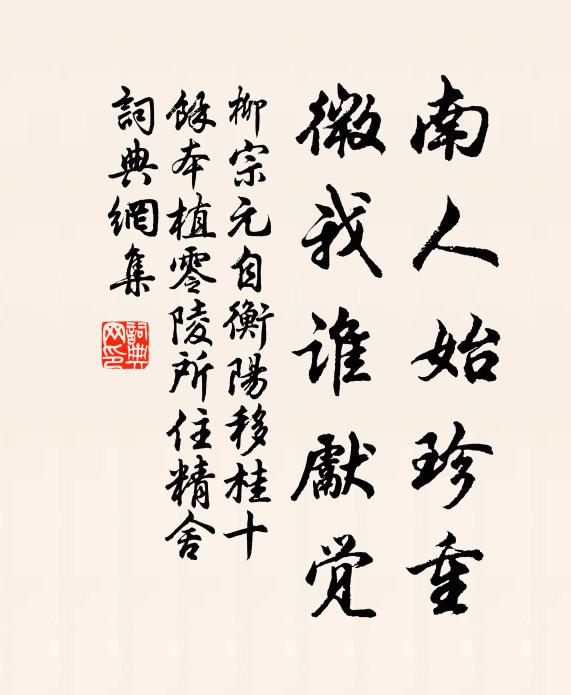 南人始珍重
微我谁獻觉
柳宗元自衡陽移桂十
餘本植零陵所住精舍
詞典網集
詞典网印